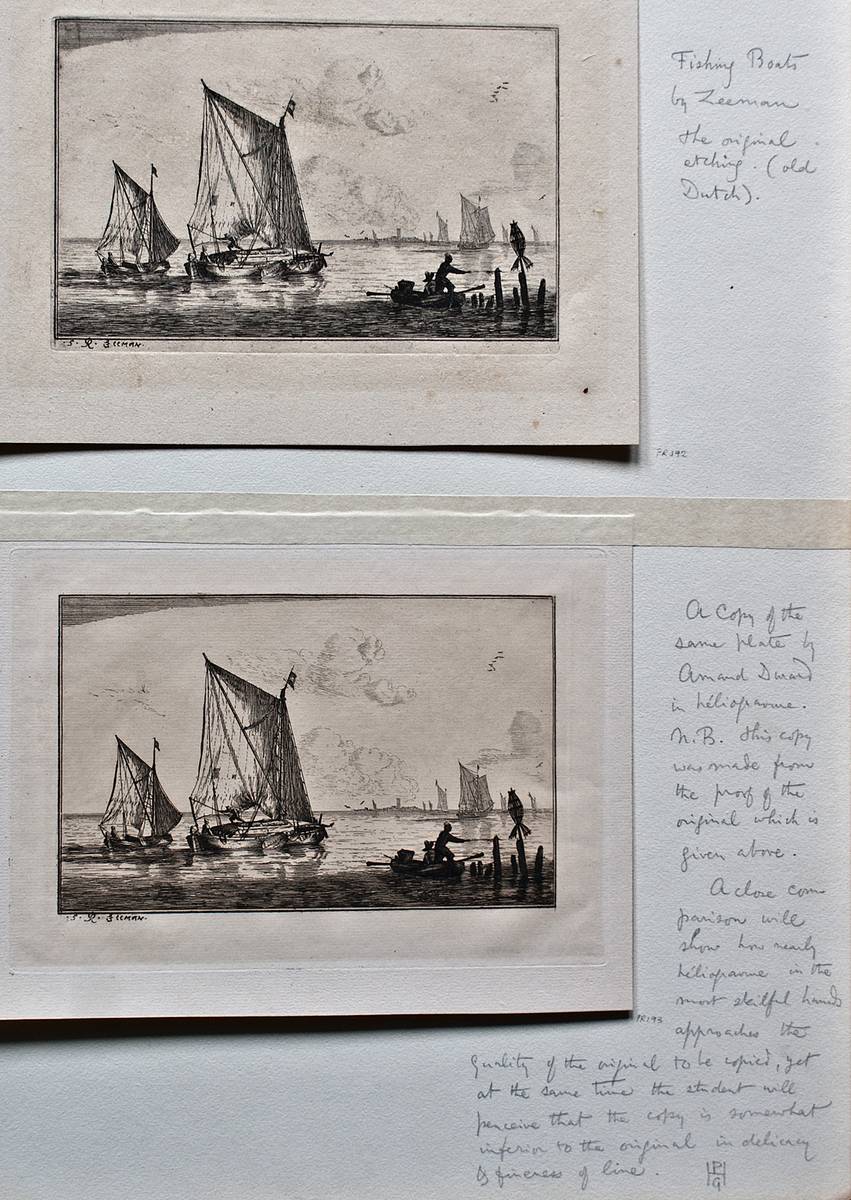 Fishing Boats
by Zeeman
the original
etching. (old
Dutch).
.5. R. ZEEMAN.
PR 192
A Copy of the
same plate by
Amand Durand
in héliogravure.
N.B. this copy
was made from
the proof of the
original which is
given above.
A close com
parison will
show how nearly
héliogravure in the
most skilful hands
approaches the
quality of the original to be copied, yet
at the same time the student will
perceive that the copy is somewhat
inferior to the original in delicacy
& fineness of line.
.5. R. ZEEMAN.
PR 193